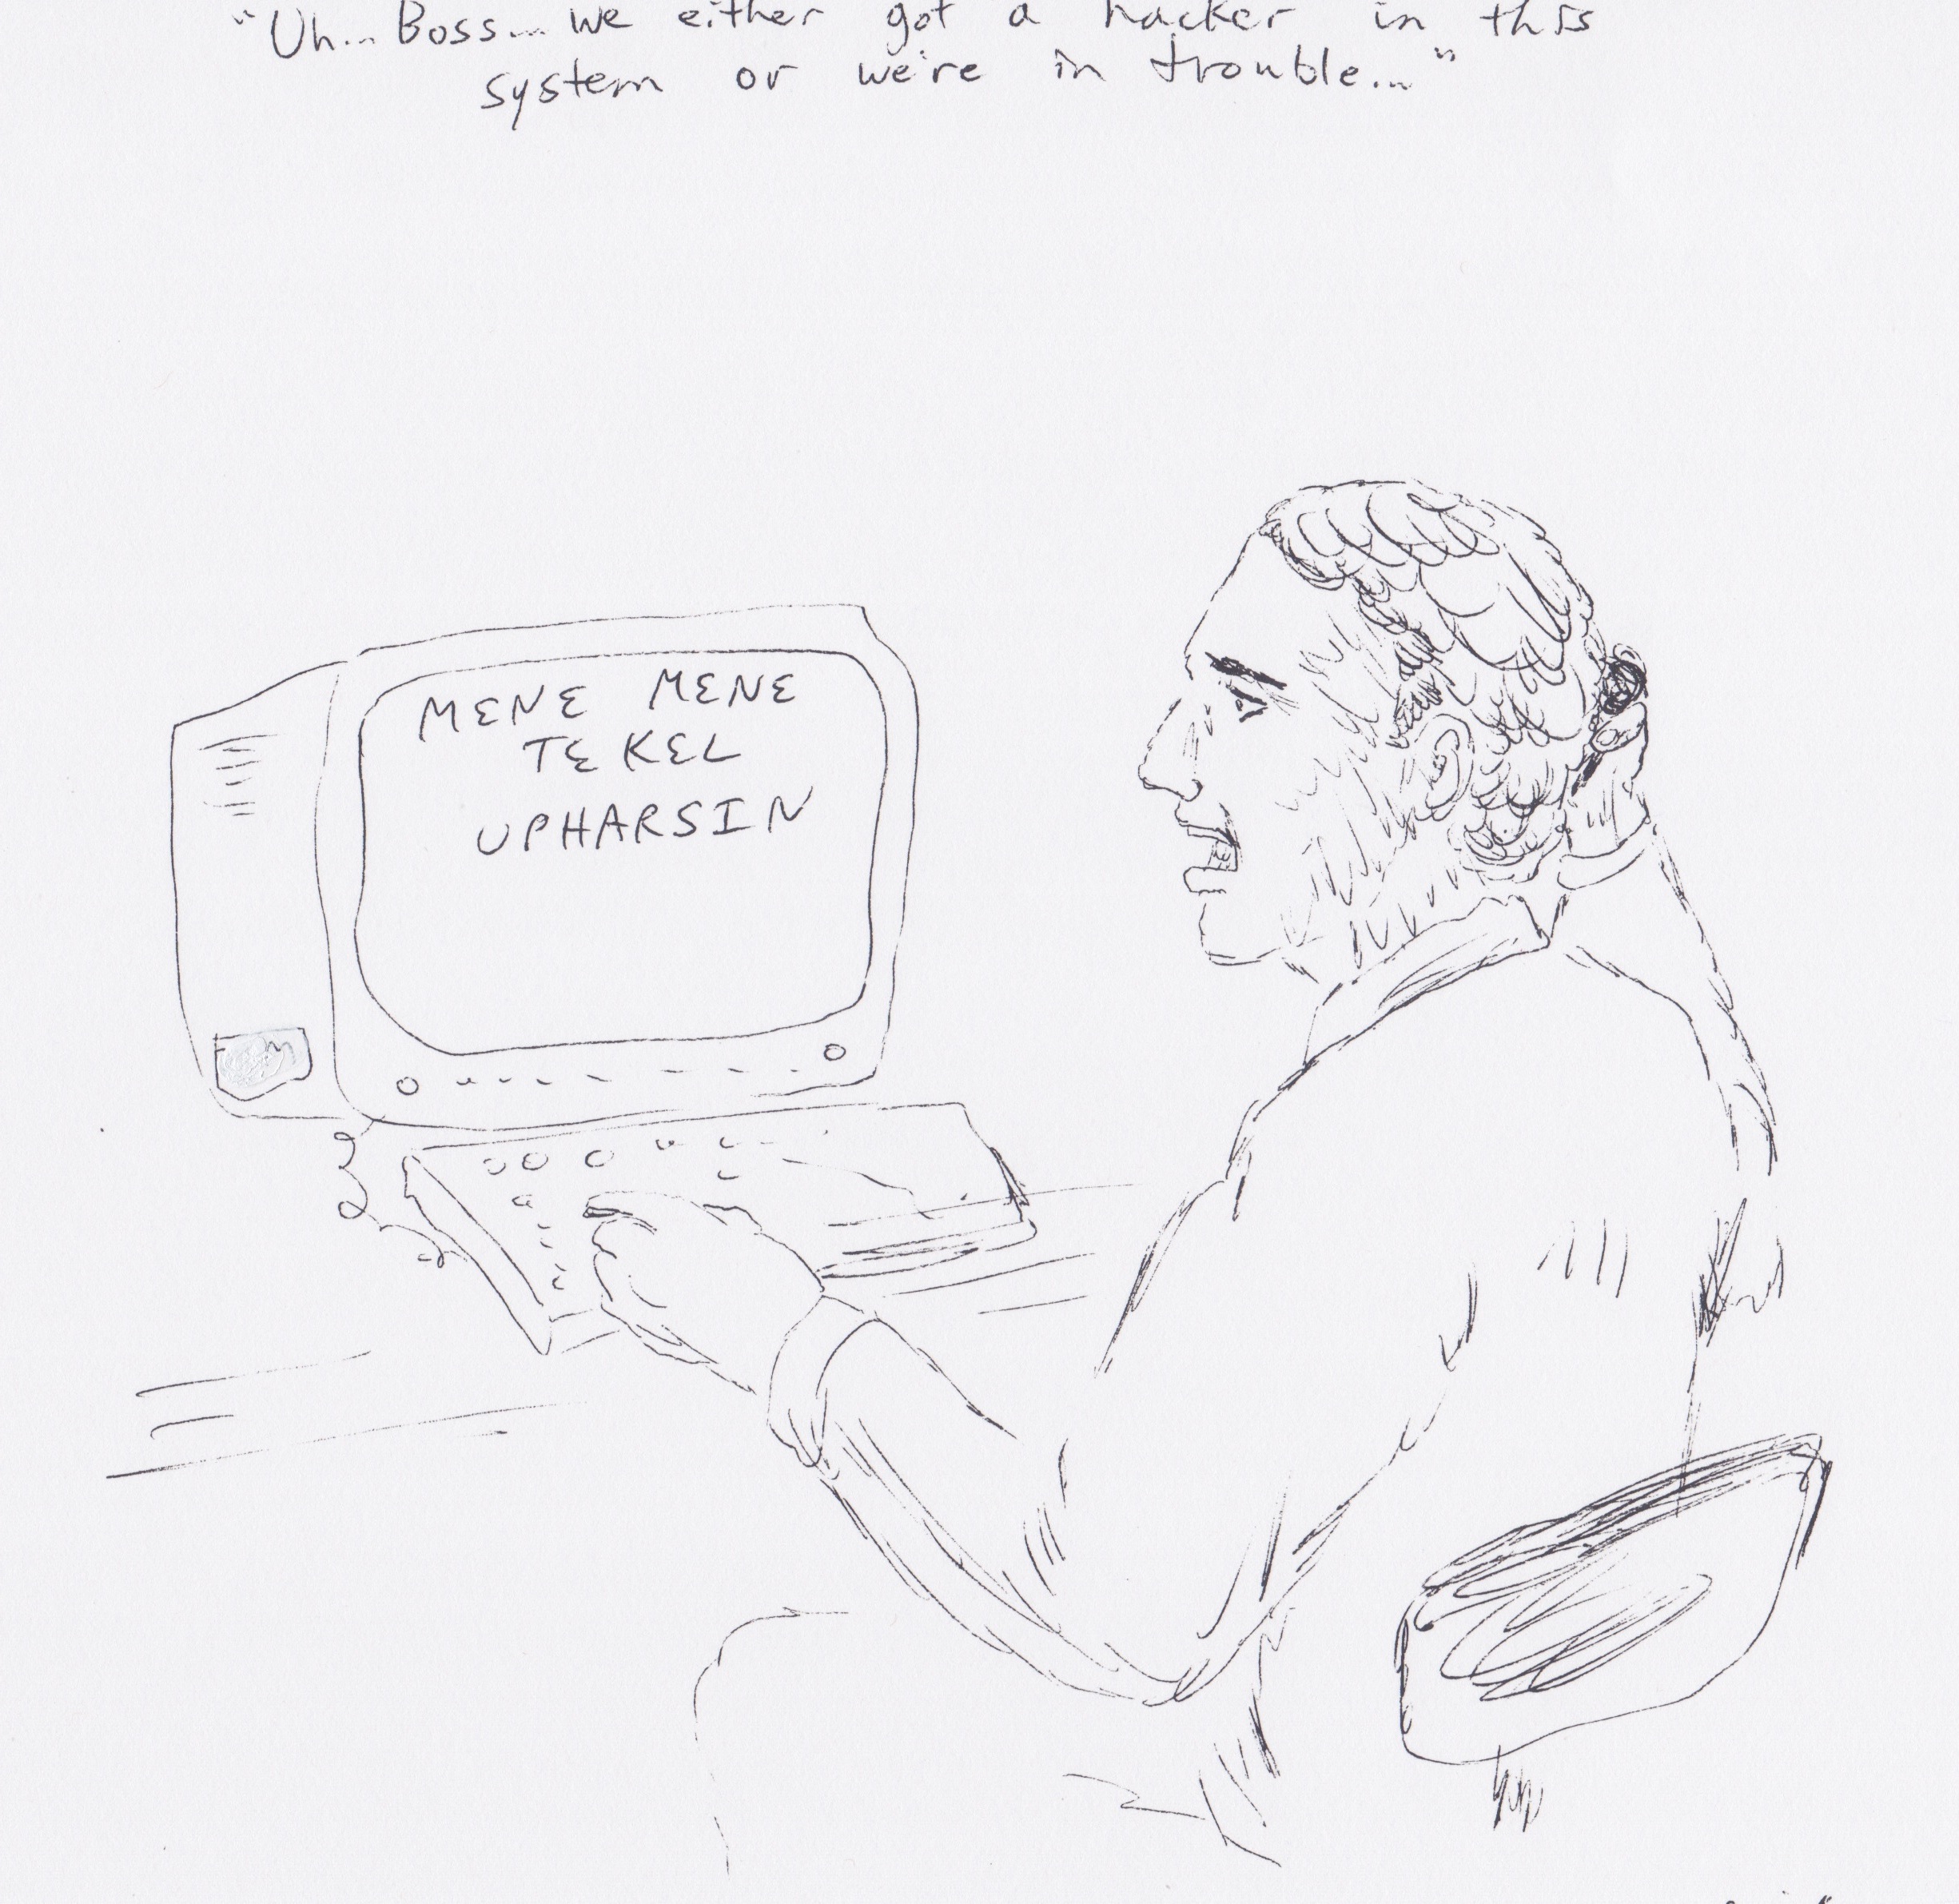 "Uh... Boss... we either got a hacker in this
system or we're in trouble..."
MENE MENE
TEKEL
UPHARSIN